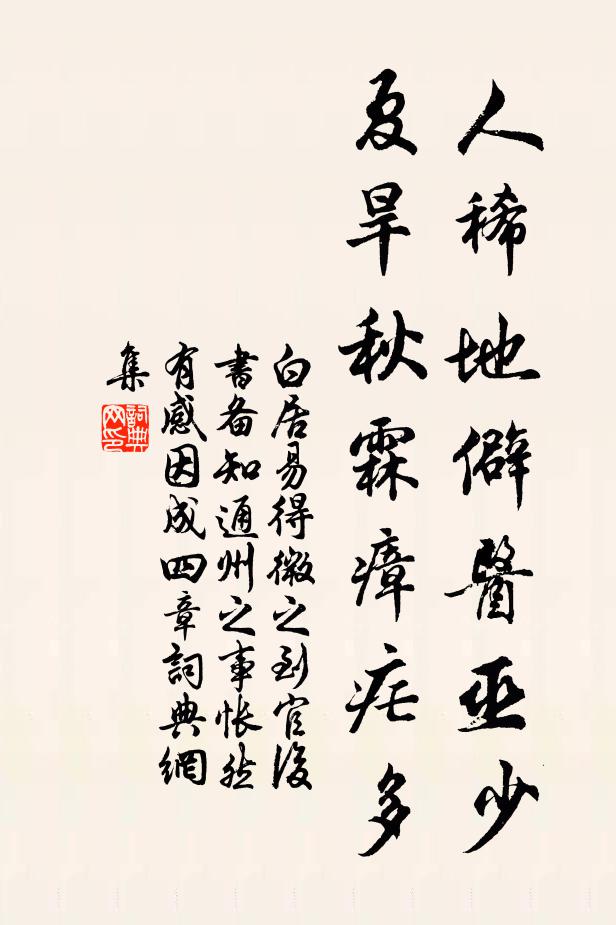 人稀地僻醫巫少
夏旱秋霖瘴疟多
白居易得微之到官後
書备知通州之事悵然
有感因成四章詞典網
集
詞典
网印